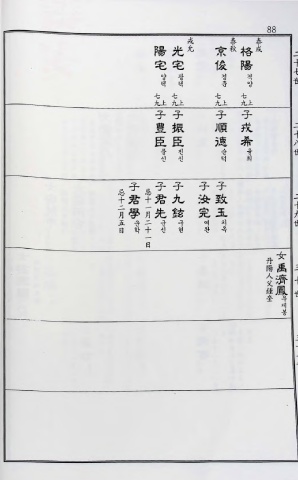 88
二十七世
泰成
格陽 격양
七九上
京俊 경준
七九上
光宅 광택
七九上
陽宅 양택
七九上
二十八世
子順德 순덕
子振臣 진신
子豊臣 풍신
二十九世
子致玉 치옥
子汝完 여완
子九鉉 구현
子君先 군선
忌十一月二十一日
子君學 군학
忌十二月五日
三十世
女禹濟鳳 우제봉
丹陽人父鍾奎